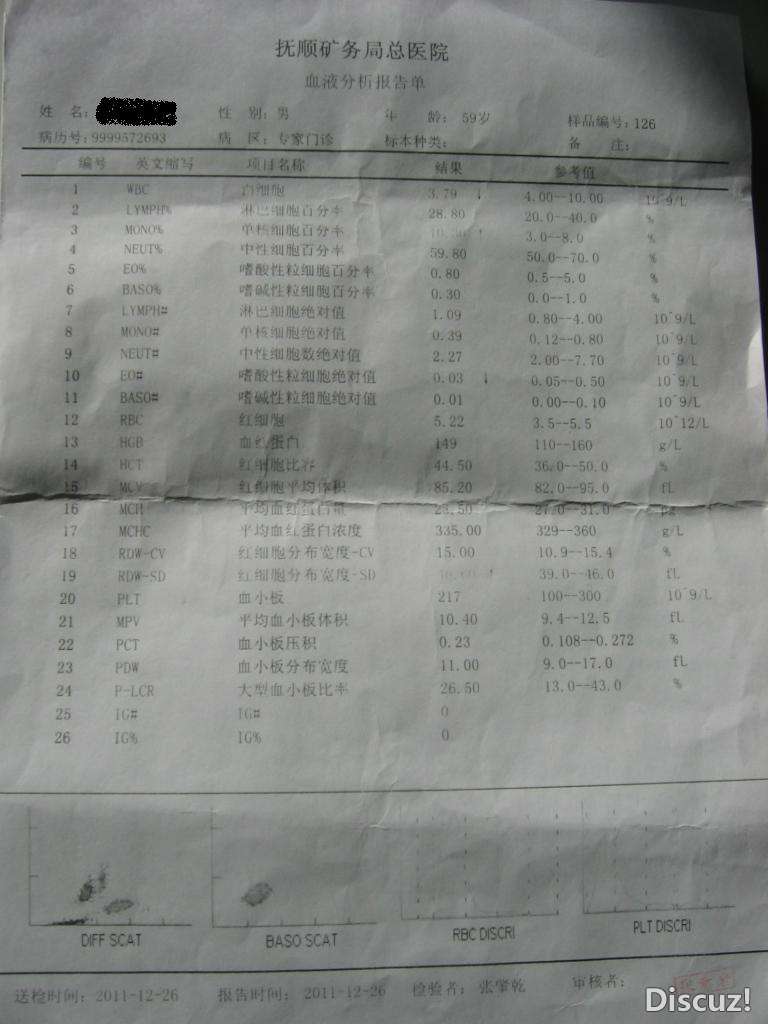 抚顺矿务局总医院
血液分析报告单
姓 名: 性 别: 男 年 龄: 59岁 样品编号: 126
病历号: 9999572693 病 区: 专家门诊 标本种类: 备 注:
编号 英文缩写 项目名称 结果 参考值
1 WBC 白细胞 3.79 ↓ 4.00--10.00 10^9/L
2 LYMPH% 淋巴细胞百分率 28.80 20.0--40.0 %
3 MONO% 单核细胞百分率 ↑ 3.0--8.0 %
4 NEUT% 中性细胞百分率 59.80 50.0--70.0 %
5 EO% 嗜酸性粒细胞百分率 0.80 0.5--5.0 %
6 BASO% 嗜碱性粒细胞百分率 0.30 0.0--1.0 %
7 LYMPH# 淋巴细胞绝对值 1.09 0.80--4.00 10^9/L
8 MONO# 单核细胞绝对值 0.39 0.12--0.80 10^9/L
9 NEUT# 中性细胞数绝对值 2.27 2.00--7.70 10^9/L
10 EO# 嗜酸性粒细胞绝对值 0.03 ↓ 0.05--0.50 10^9/L
11 BASO# 嗜碱性粒细胞绝对值 0.01 0.00--0.10 10^9/L
12 RBC 红细胞 5.22 3.5--5.5 10^12/L
13 HGB 血红蛋白 149 110--160 g/L
14 HCT 红细胞比容 44.50 36.0--50.0 %
15 MCV 红细胞平均体积 85.20 82.0--95.0 fL
16 MCH 平均血红蛋白量 28.50 27.0--31.0 pg
17 MCHC 平均血红蛋白浓度 335.00 329--360 g/L
18 RDW-CV 红细胞分布宽度-CV 15.00 10.9--15.4 %
19 RDW-SD 红细胞分布宽度-SD ↑ 39.0--46.0 fL
20 PLT 血小板 217 100--300 10^9/L
21 MPV 平均血小板体积 10.40 9.4--12.5 fL
22 PCT 血小板压积 0.23 0.108--0.272 %
23 PDW 血小板分布宽度 11.00 9.0--17.0 fL
24 P-LCR 大型血小板比率 26.50 13.0--43.0 %
25 IG# IG# 0
26 IG% IG% 0
DIFF SCAT BASO SCAT RBC DISCRI PLT DISCRI
送检时间: 2011-12-26 报告时间: 2011-12-26 检验者: 张肇乾 审核者:
Discuz!